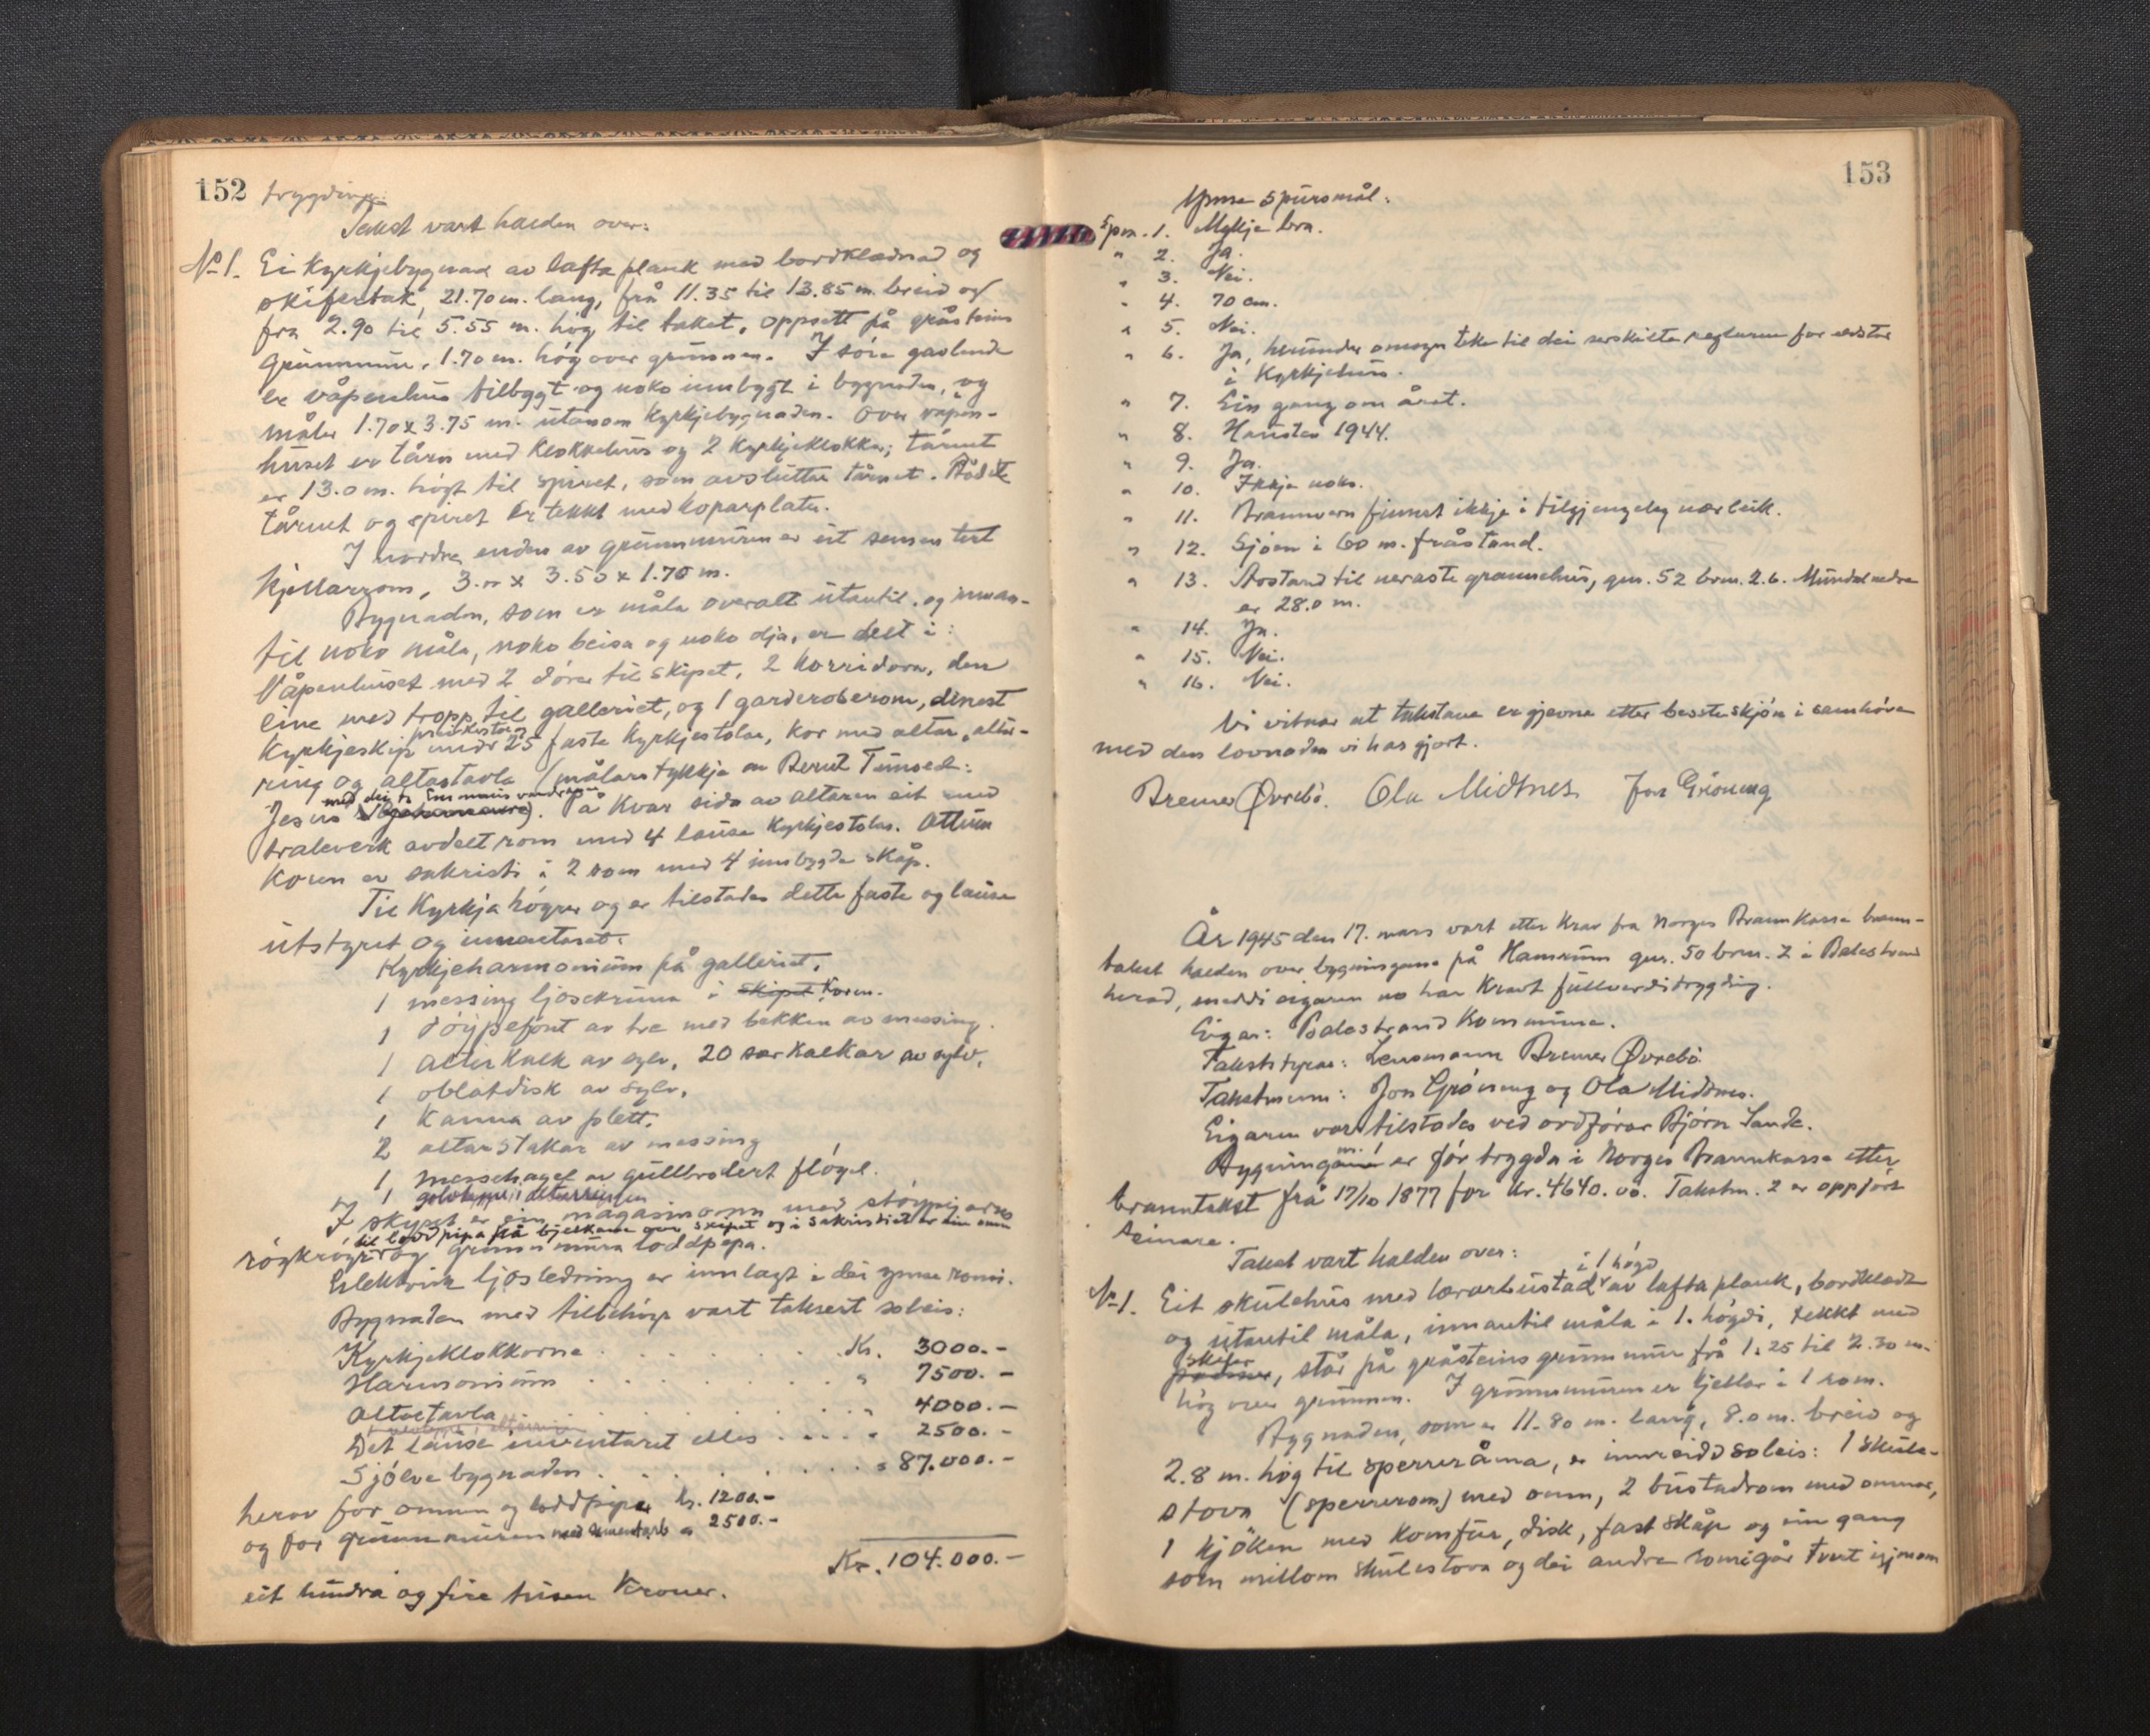 152 trygding.
Takst vart halden over:
No 1. Ei Kyrkjebygnad av lafta plank med bordklædnad og
skifertak, 21.70 m. lang, frå 11.35 til 13.85 m. breid og
fra 2.90 til 5.55 m. høg til taket, oppsett på gråsteins
grunnmur, 1.70 m. høg over grunnen. I søre gavlende
er våpenhus tilbygt og noko innbygt i bygnaden, og
måler 1.70 x 3.75 m. utanom Kyrkjebygnaden. Over våpen-
huset er tårn med Klokkehus og 2 Kyrkjeklokker; tårnet
er 13.0 m. høgt til spiret, som avsluttar tårnet. Både
tårnet og spiret er tekkt med koparplater.
I nordre enden av grunnmuren er eit sementert
Kjellarrom, 3.00 x 3.50 x 1.70 m.
Bygnaden, som er måla overalt utantil, og innan-
til noko måla, noko beisa og noko olja, er delt i:
Våpenhuset med 2 dører til skipet, 2 korridorar, den
eine med tropp til galleriet, og 1 garderoberom, dinest
Kyrkjeskip med preikestol 25 faste Kyrkjestolar, Kor med altar, altar-
ring og altartavla (målarstykkje av Bernt Tunold:
Jesus med dei to Emmaus vandrarane). På Kvar side av altaren eit med
tralleverk avdelt rom med 4 lause Kyrkjestolar. Attum
Koren er sakristi i 2 rom med 4 innbygde skåp.
Til Kyrkja høyrer og er tilstades dette faste og lause
utstyret og innventaret:
Kyrkjeharmonium på galleriet,
1 messing ljosekruna i skipet Koren.
1 døypefont av tre med bekken av messing.
1 alterkalk av sylv, 20 særkalkar av sylv,
1 oblatdisk av sylv,
1 Kanna av plett,
2 altarstakar av messing
1 messehagel av gullbrodert fløyel.
1 golvteppe i altarringen
I skipet er ein magasinomn med støypejarns
til loddpipa på bjelkane over skipet og i sakristiet er ein omn
røykrøyr og grunnmura loddpipa.
Elektrisk ljosledning er innlagt i dei ymse romi.
Bygnaden med tilbehøyr vart taksert soleis:
Kyrkjeklokkorne . . . . . . Kr. 3000.-
Harmonium . . . . . . " 7500.-
Altertavla . . . . . . " 4000.-
Det lause inventaret elles . . . . " 2500.-
Sjølve bygnaden . . . . . . " 87.000.-
herav for omnen og loddpipa kr. 1200.-
og for grunnmuren med sementarb " 2500.-
Kr. 104.000.-
eit hundra og fire tusen Kroner.
153
Ymse spursmål:
Spm. 1. Mykje bra.
" 2. Ja.
" 3. Nei.
" 4. 70 cm.
" 5. Nei.
" 6. Ja, herunder omsyn teke til dei serskilte reglarne for eldstar
i Kyrkjehus.
" 7. Ein gang om året.
" 8. Hausten 1944.
" 9. Ja.
" 10. Ikkje noko.
" 11. Brannvern finnest ikkje i tilgjengeleg nærleik.
" 12. Sjøen i 60 m. fråstand.
" 13. Avstand til næraste grannehus, gnr. 52 brn. 2.6. Mundal nedre
er 28.0 m.
" 14. Ja.
" 15. Nei.
" 16. Nei.
Vi vitnar at takstane er gjevne etter beste skjøn i samhøve
med den lovnaden vi har gjort.
Bremer Øvrebø. Ola Midtnes Jon Grøneng
År 1945 den 17. mars vart etter Krav fra Norges Brannkasse brann-
takst halden over bygningane på Hamrum gnr. 50 brn. 2 i Balestrand
herad, med di eigaren no har Kravt fullverditrygding.
Eigar: Balestrand Kommune.
Takststyrar: Lensmann Bremer Øvrebø.
Takstmenn: Jon Grøneng og Ola Midtnes.
Eigaren var tilstades ved ordførar Bjørn Sande.
Bygningane nr. 1 er før trygda i Norges Brannkasse etter
branntakst frå 17/10 1877 for kr. 4640.00. Takstnr. 2 er oppført
seinare.
Takst vart halden over:
No 1. Eit skulehus med lærarbustad i 1 høgd av lafta plank, bordkledt
og utantil måla, innantil måla i 1. høgdi, tekkt med
skifer, står på gråsteins grunnmur frå 1.25 til 2.30 m.
høg over grunnen. I grunnmuren er kjellar i 1 rom.
Bygnaden, som er 11.80 m. lang, 8.0 m. breid og
2.8 m. høg til sperreråma, er innreidd soleis: 1 skule-
stova (sperrerom) med omn, 2 bustadrom med omnar,
1 kjøken med Komfur, disk, fast skåp og ein gang
som millom skulestova og dei andre romi går tvert igjenom